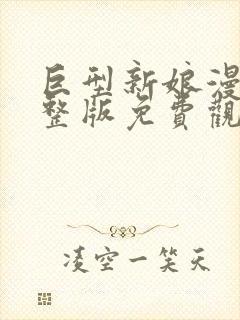 巨型新娘漫
整版免費觀
凌空一笑天